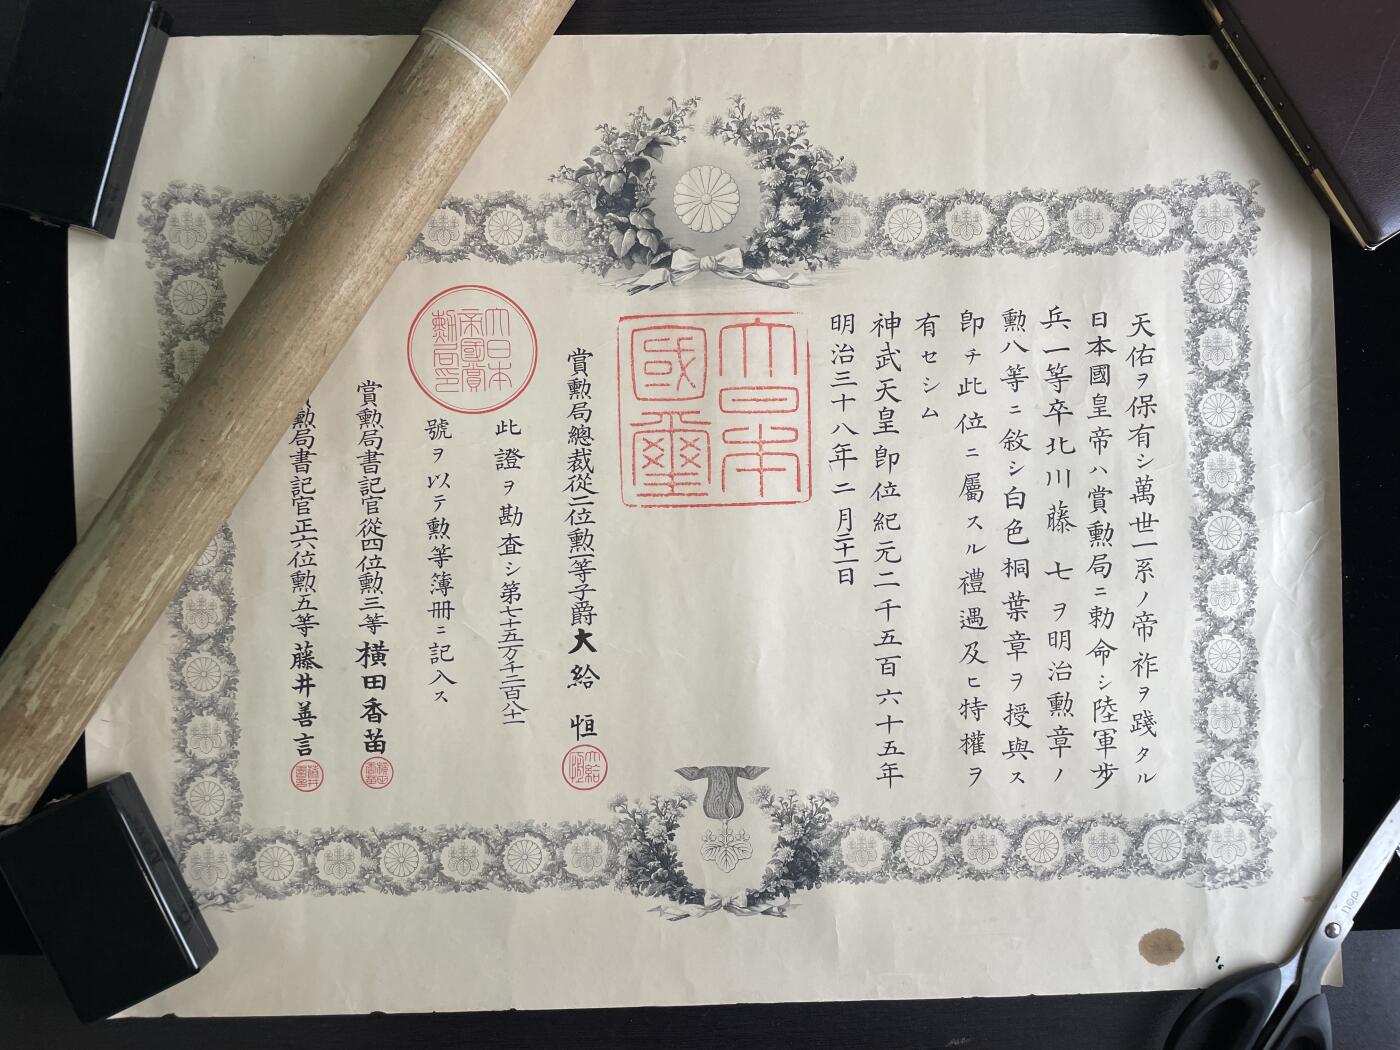 天佑ヲ保有シ萬世一系ノ帝祚ヲ踐タル
日本國皇帝ハ賞勲局ニ勅命シ陸軍步
兵一等卒北川藤七ヲ明治勲章ノ
勲八等ニ敘シ白色桐葉章ヲ授與ス
卽チ此位ニ屬スル禮遇及ヒ特權ヲ
有セシム
神武天皇卽位紀元二千五百六十五年
明治三十八年二月二十一日
大日本
國璽
賞勲局總裁從二位勲一等子爵大給恒
大給恒
此證ヲ勘査シ第七十五万千二百八十一
號ヲ以テ勲等簿冊ニ記入ス
大日本
帝國賞
勲局印
賞勲局書記官從四位勲三等橫田香苗
勲局書記官正六位勲五等藤井善言
nop